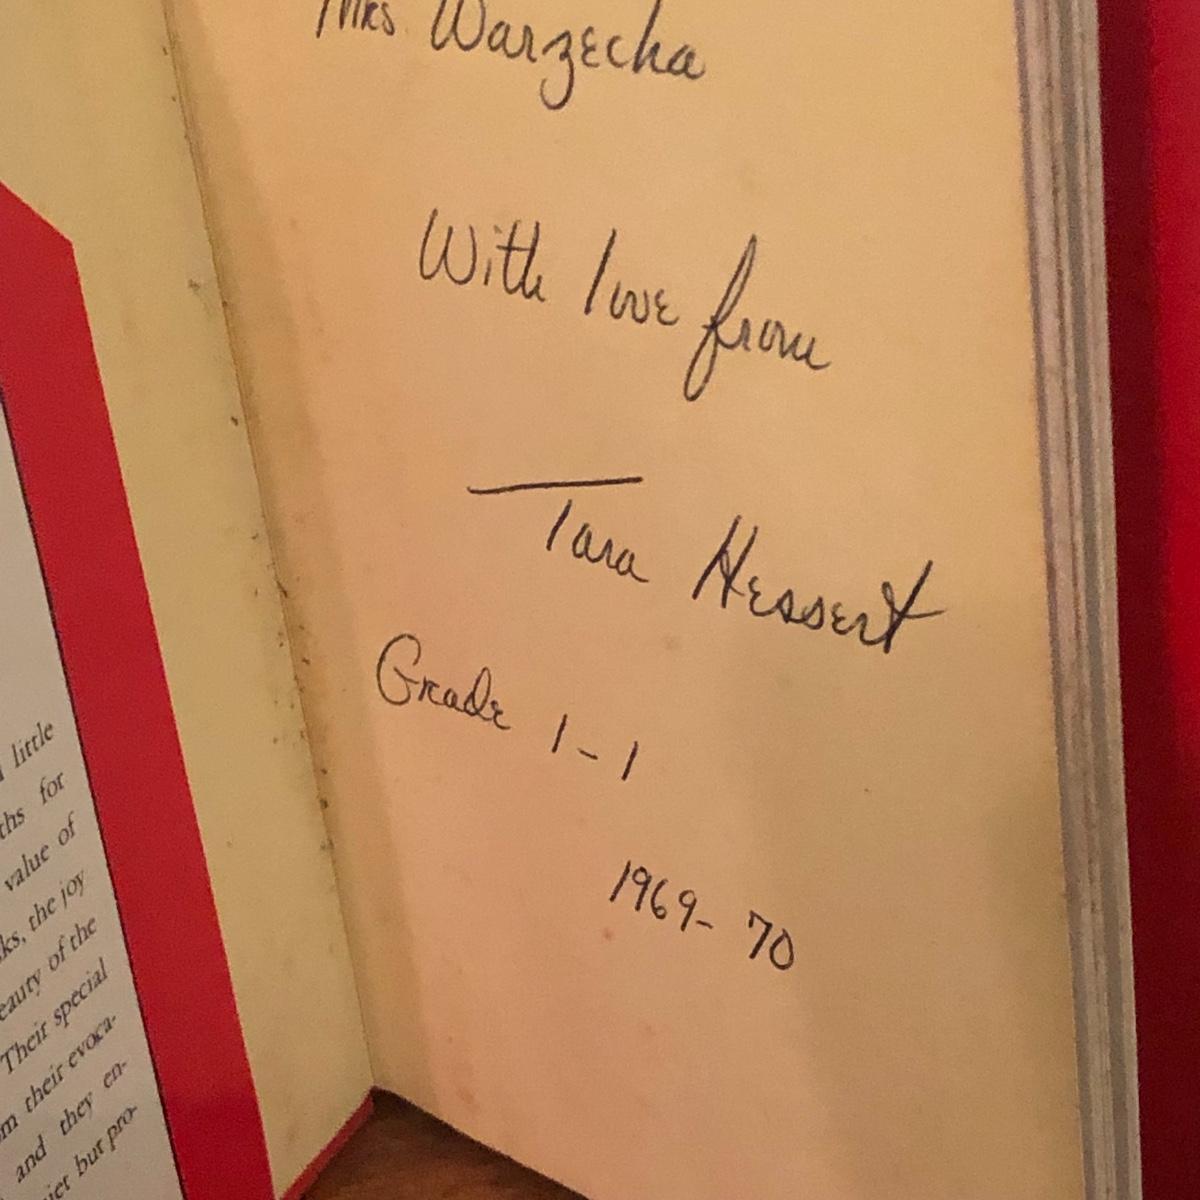 Mrs. Warzecha
With love from
Tara Hessert
Grade 1-1
1969-70
little
ths for
value of
ks, the joy
eauty of the
Their special
m their evoca-
and they en-
iet but pro-